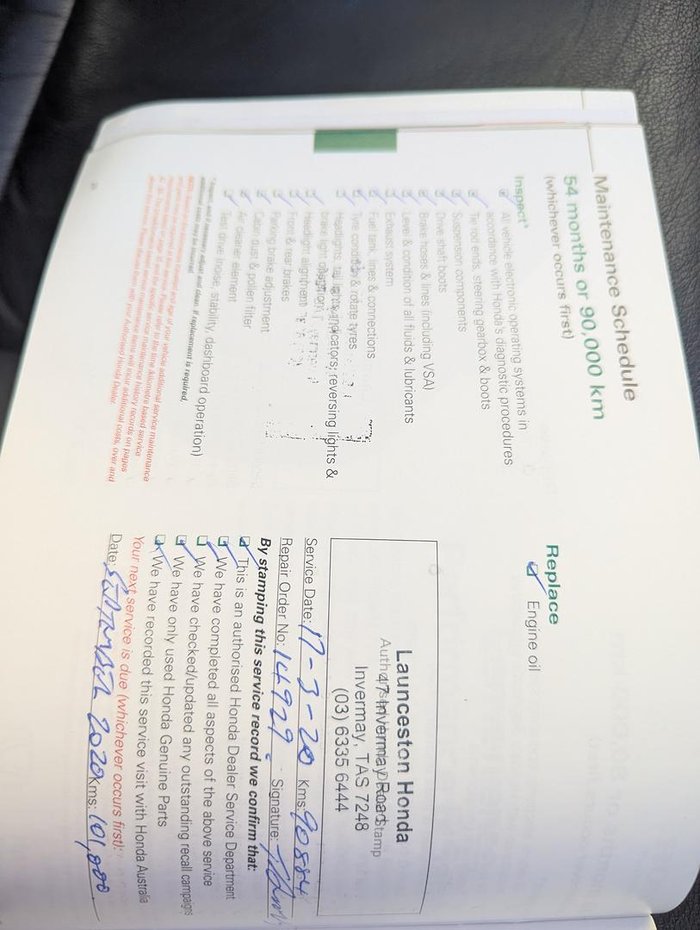 Maintenance Schedule
54 months or 90,000 km
(whichever occurs first)
Inspect*
All vehicle electronic operating systems in
accordance with Honda's diagnostic procedures
Tie rod ends, steering gearbox & boots
Suspension components
Drive shaft boots
Brake hoses & lines (including VSA)
Level & condition of all fluids & lubricants
Exhaust system
Fuel tank, lines & connections
Tyre condition & rotate tyres
Headlights, tail lights, indicators, reversing lights &
brake light operation
Headlight alignment
Front & rear brakes
Parking brake adjustment
Cabin dust & pollen filter
Air cleaner element
Test drive (noise, stability, dashboard operation)
*Inspect, and if necessary adjust and clean. If replacement is required,
additional costs may be incurred.
Replace
Engine oil
Launceston Honda
47 Invermay Road
Stamp
Invermay, TAS 7248
(03) 6335 6444
Service Date: 17-3-20 Kms: 90884
Repair Order No: 14929 Signature:
By stamping this service record we confirm that:
This is an authorised Honda Dealer Service Department
We have completed all aspects of the above service
We have checked/updated any outstanding recall campaigns
We have only used Honda Genuine Parts
We have recorded this service visit with Honda Australia
Your next service is due (whichever occurs first):
Date: SEPTEMBER 2020 Kms: 101,000